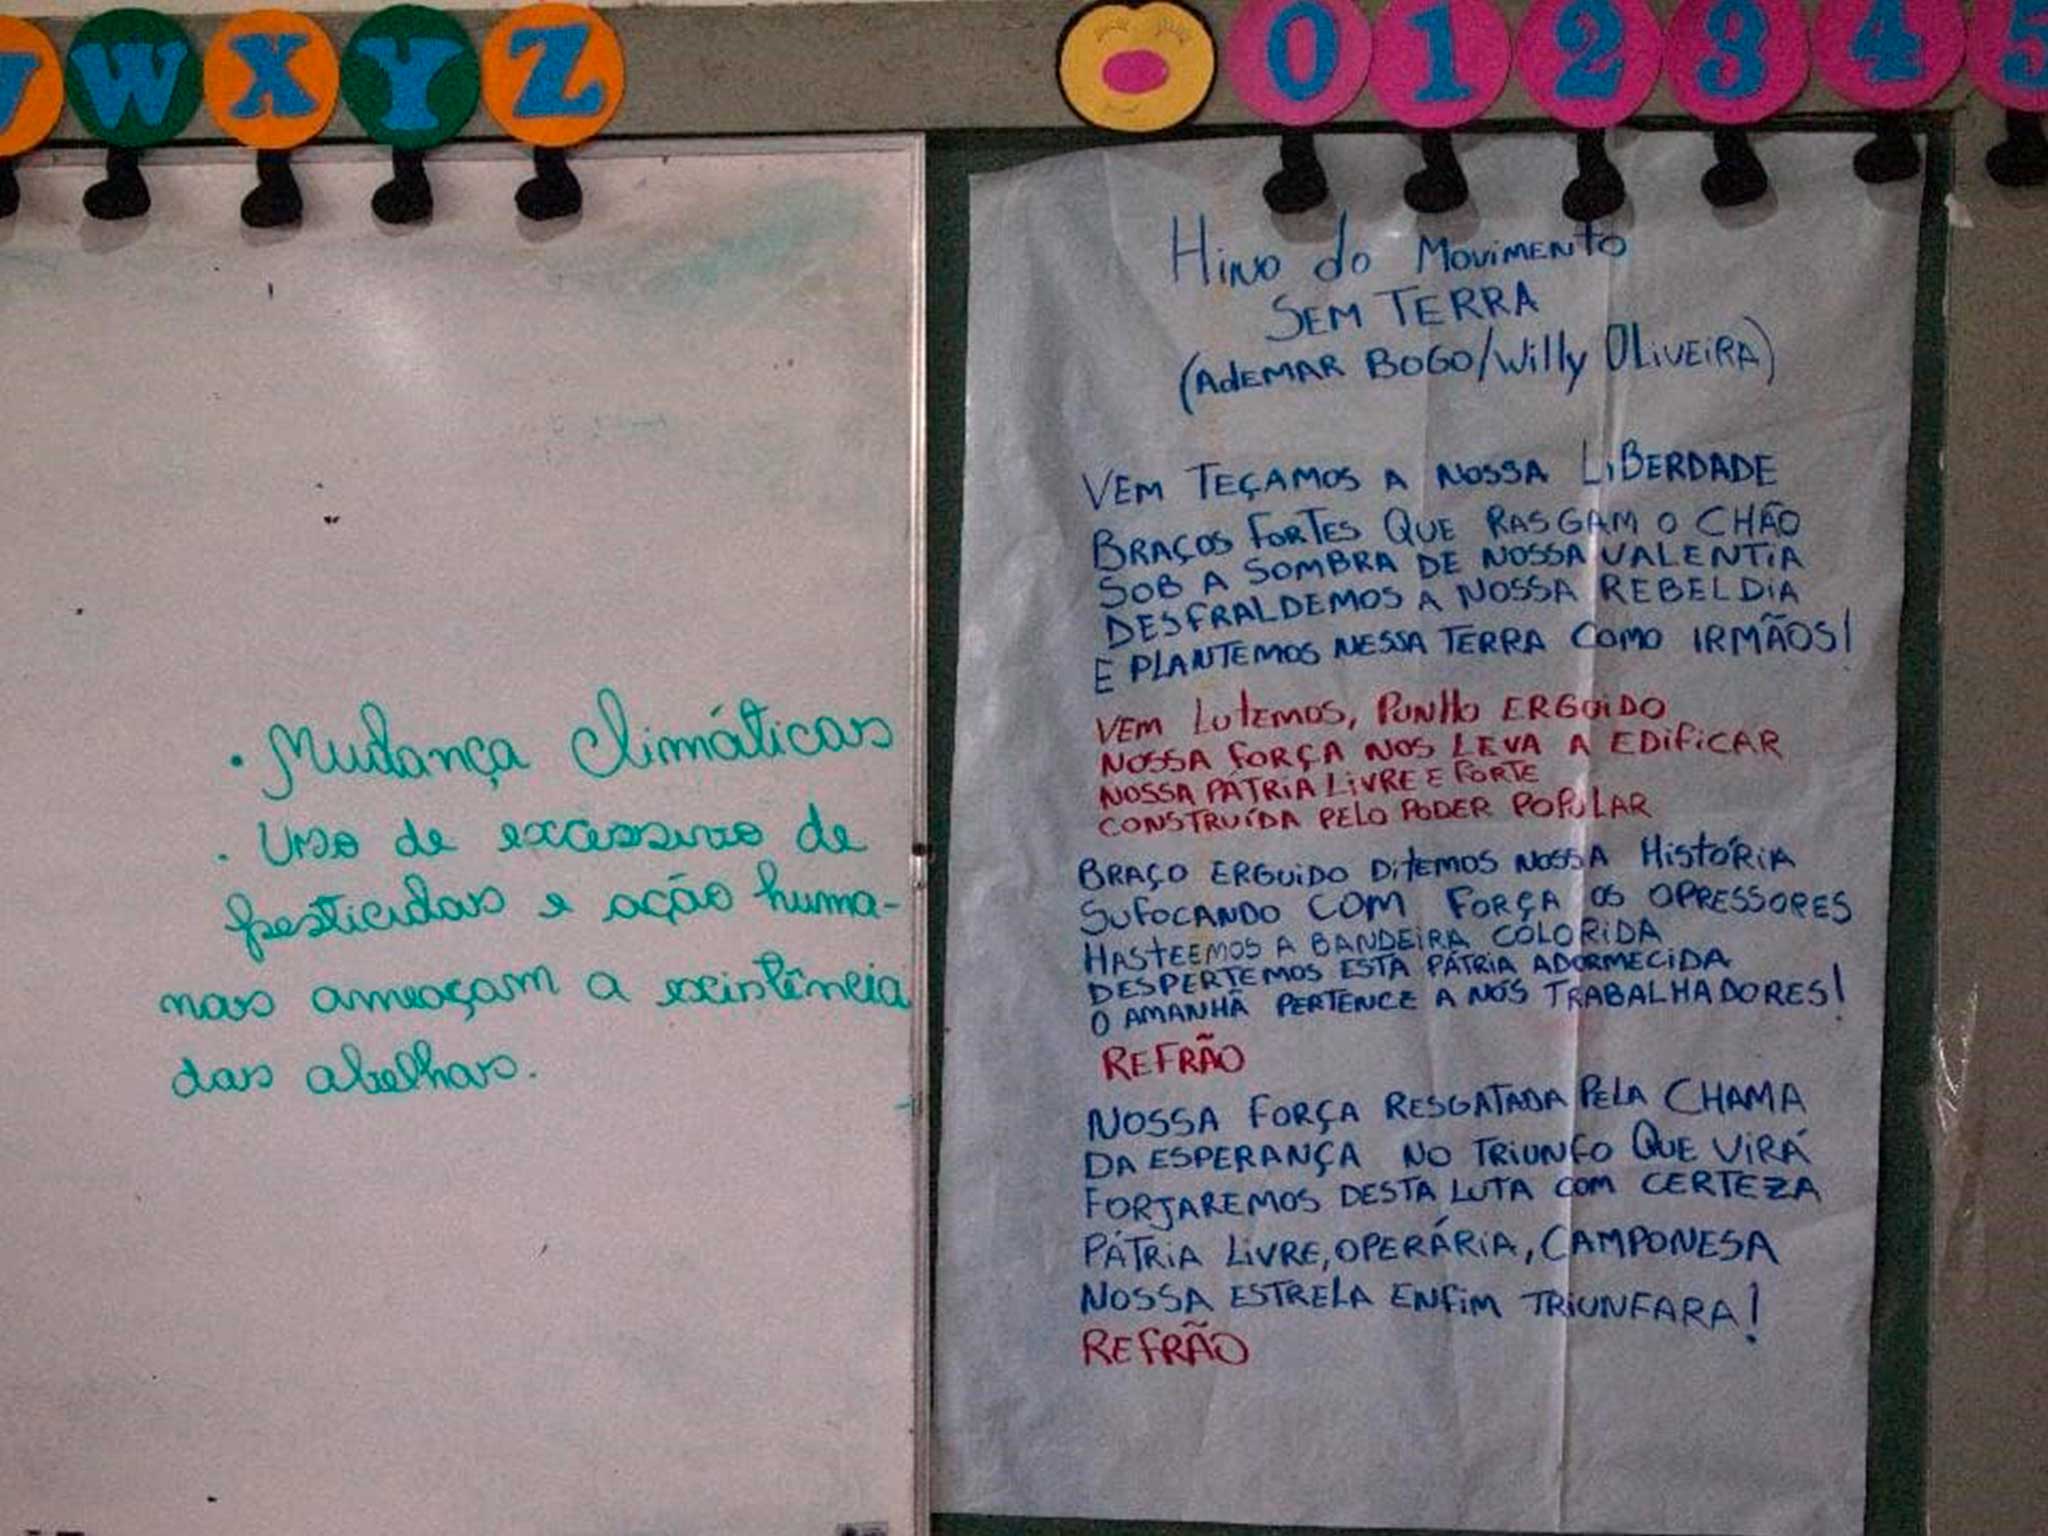 V W X Y Z
0 1 2 3 4 5
• Mudança Climáticas
. Uso de excessivo de
pesticidas e ação huma-
nas ameaçam a existência
das abelhas.
HINO do MOVIMENTO
SEM TERRA
(AdEMAR BOGO/Willy OLIVEIRA)
VEM TEÇAMOS A NOSSA LIBERDADE
BRAÇOS FORTES QUE RASGAM O CHÃO
SOB A SOMBRA DE NOSSA VALENTIA
DESFRALDEMOS A NOSSA REBELDIA
E PLANTEMOS NESSA TERRA COMO IRMÃOS!
VEM LUTEMOS, PUNHO ERGUIDO
NOSSA FORÇA NOS LEVA A EDIFICAR
NOSSA PÁTRIA LIVRE E FORTE
CONSTRUÍDA PELO PODER POPULAR
BRAÇO ERGUIDO DITEMOS NOSSA HISTÓRIA
SUFOCANDO COM FORÇA OS OPRESSORES
HASTEEMOS A BANDEIRA COLORIDA
DESPERTEMOS ESTA PÁTRIA ADORMECIDA
O AMANHÃ PERTENCE A NÓS TRABALHADORES!
REFRÃO
NOSSA FORÇA RESGATADA PELA CHAMA
DA ESPERANÇA NO TRIUNFO QUE VIRÁ
FORJAREMOS DESTA LUTA COM CERTEZA
PÁTRIA LIVRE, OPERÁRIA, CAMPONESA
NOSSA ESTRELA ENFIM TRIUNFARA!
REFRÃO